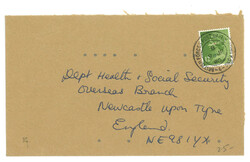 Dept Health & Social Security
Overseas Branch
Newcastle upon Tyne
England
NE98 1YX
25-